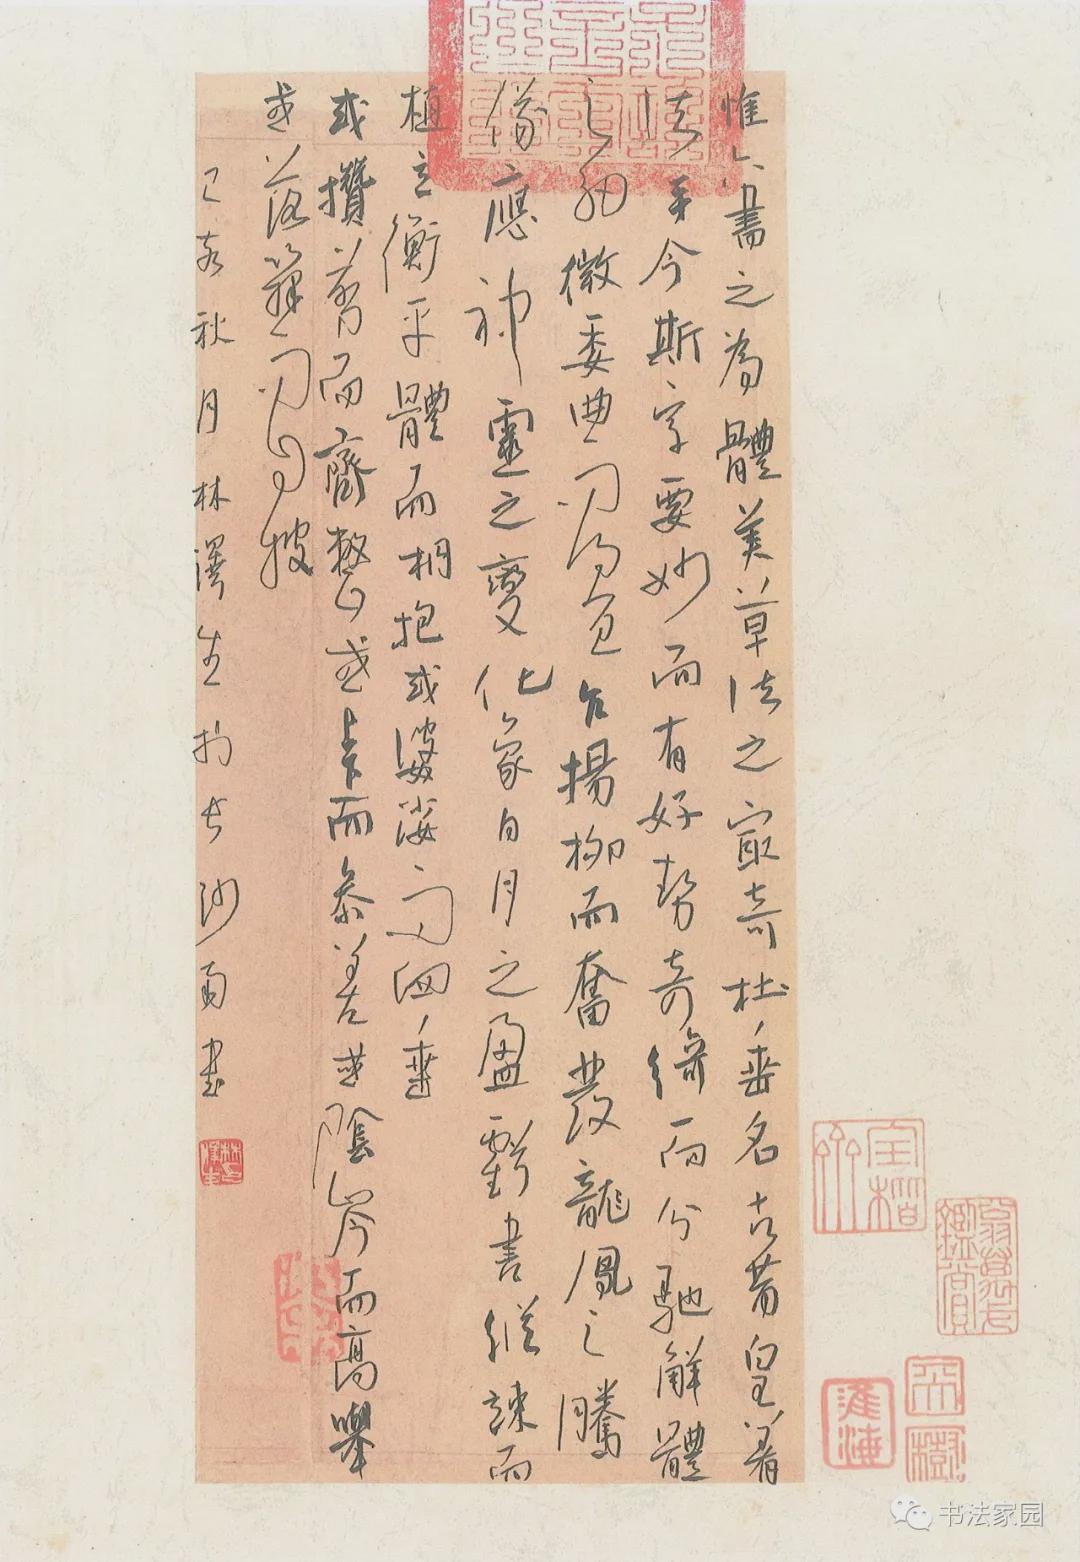 惟六書之為體美草法之寂奇杜、垂名古昔皇著
法乎今斯字要妙而有好勢奇綺而分馳解體
之細微委曲而得宜乍楊柳而奮發龍鳳之騰
儀應神靈之變化象日月之盈虧書縱竦而
植立衡平體而相抱或婆娑而四、垂
或攢翦而齊整或上下而參差或陰岑而高舉
或落籜而自披
己亥秋月林澤生於長沙南書
书法家园